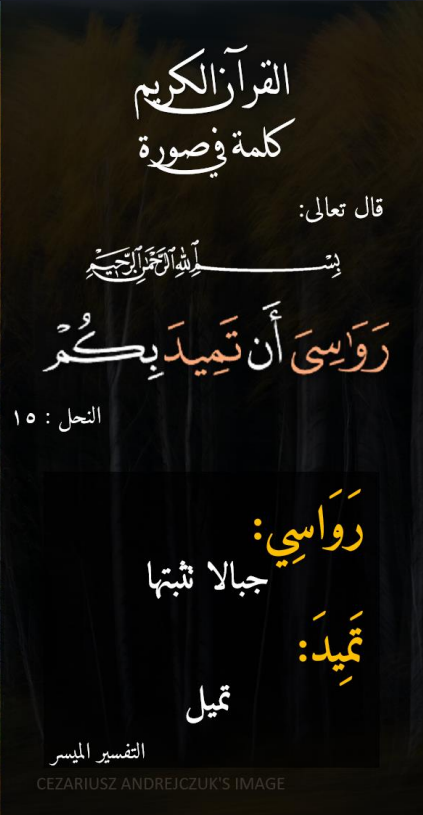 القرآن الكريم
كلمة في صورة
قال تعالى:
بِسْمِ اللهِ الرَّحْمَٰنِ الرَّحِيمِ
رَوَٰسِىَ أَن تَمِيدَ بِكُمْ
النحل : ١٥
رَوَاسِي:
جبالا تثبتها
تَمِيدَ:
تميل
التفسير الميسر
CEZARIUSZ ANDREJCZUK'S IMAGE